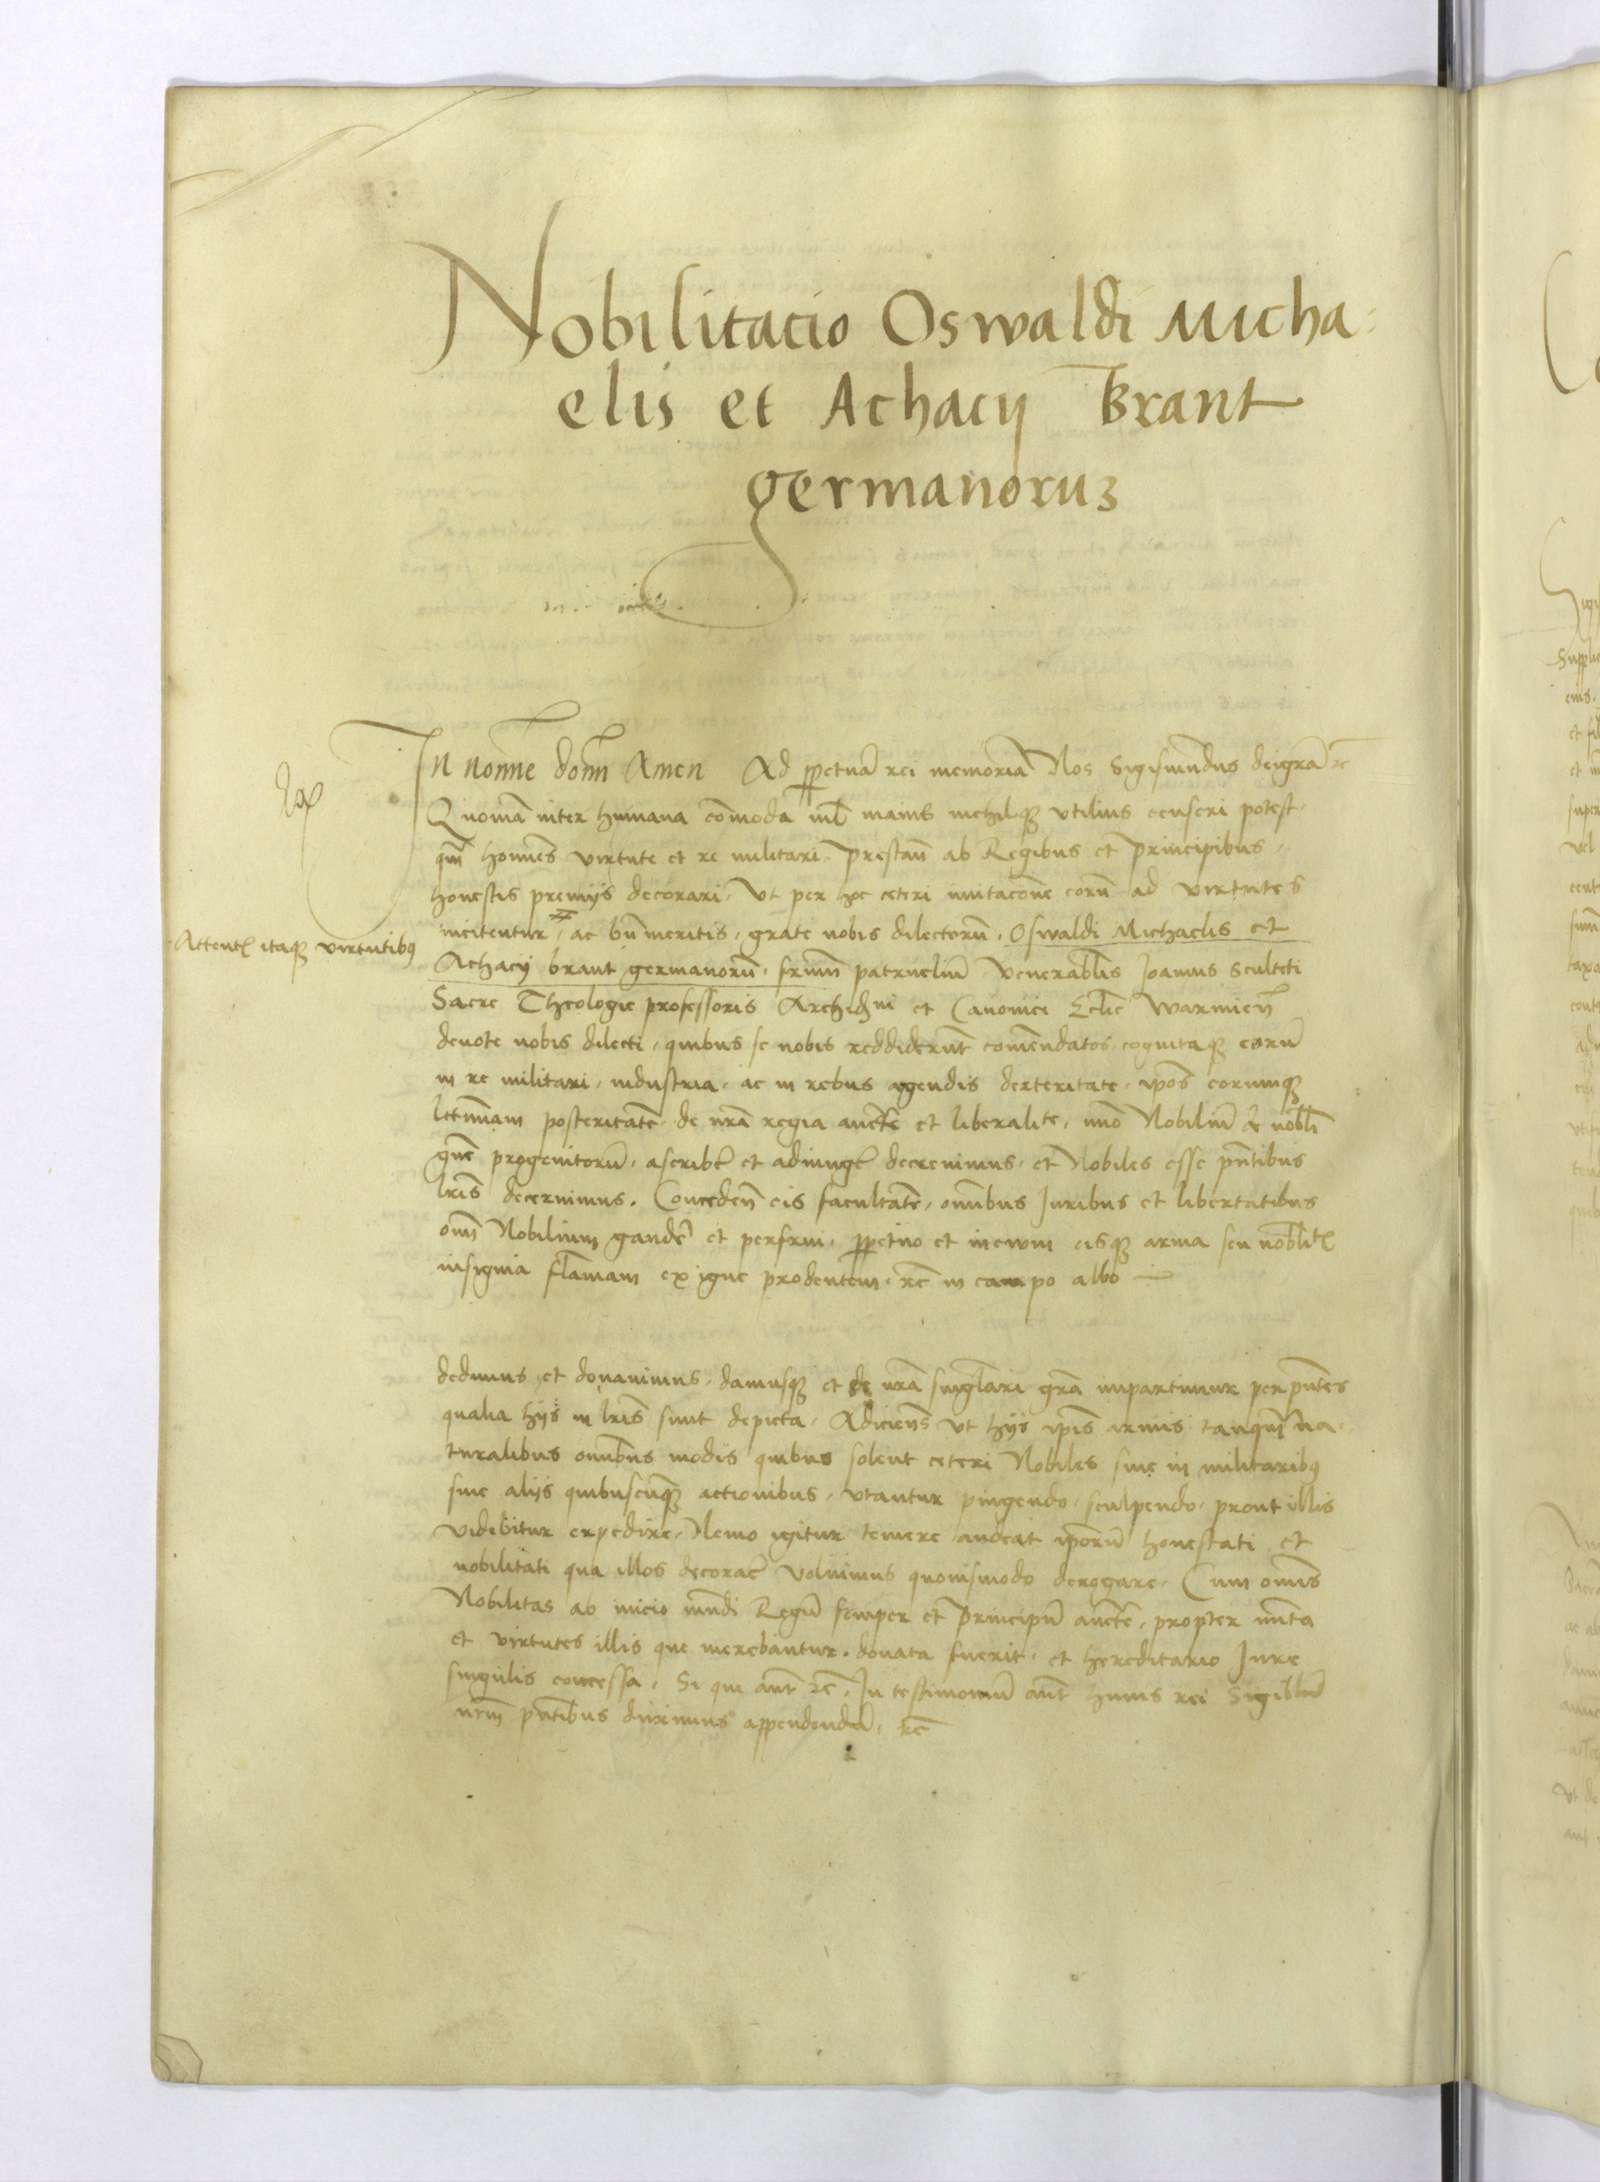 Nobilitacio Oswaldi Micha-
elis et Achacij Brant
germanoruȝ
In no͞me do͞m Amen Ad ꝑpetuā rei memoriā Nos Sigismundus dei grā ꝛc̄
Quoniā inter humana cōmoda nil̄ maius nichilqꝫ utilius censeri potest
qm̄ ho͞mes virtute et re militari prestan̄ ab Regibus et Principibus
honestis premijs decorari, Ut per hoc ceteri imitacōne eorū ad virtutes
incitentur, ac bn̄meritis, grate nobis dilectorū, Oswaldi Michaelis et
Attent{is} itaqꝫ virtutibꝰ
Achacij brant germanorū, frūm patrueliū Venerabl̄is Joannis Sculteti
Sacre Theologie professoris Archid̄ni et Canonici Eccl̄ie Warmien̄
devote nobis dilecti, quibus se nobis reddiderunt comēndatos, cognitaqꝫ eorū
in re militari, industria, ac in rebus agendis dexteritate, ip̄os eorumqꝫ
l̄ttimam posteritatē de nr̄a regia auctē et liberalite, nūo Nobiliū ac nobl̄i
gn̄e progenitorū, ascriber̄ et adiunger̄ decrevimus, et Nobiles esse pn̄tibus
lr̄is decernimus. Conceden̄ eis facultatē, om̄ibus Juribus et libertatibus
om̄ Nobilium gauder̄ et perfrui, ꝑpetuo et in evum eisqꝫ arma seu nobl̄it{atis}
insignia fla͞mam ex igne prodeuntem, ꝛc̄ in campo albo
dedimus et donavimus, damusqꝫ et de nr̄a singl̄ari grā impartimur per pn̄tes
qualia hijs in lr̄is sunt depicta, Adiciens̄ ut hijs ip̄is armis tanqm̄ na-
turalibus om̄ibus modis quibus solent ceteri Nobiles sive in militaribꝰ
sive alijs quibuscūqꝫ actionibus, utantur pingendo, sculpendo, prout illis
videbitur expedire, Nemo igitur temere audeat ip̄orū honestati et
nobilitati qua illos decorar̄ voluimus quovismodo derogare, Cum om̄is
Nobilitas ab inicio mundi Regū semper et Principū auctē, propter mr̄ita
et virtutes illis que merebantur, donata fuerit, et hereditario Jure
singulis concessa, Si qui aut̄ ꝛc̄, In testimoniū aut̄ huius rei Sigillū
nr̄m pn̄tibus duximus appendendū, ꝛc̄